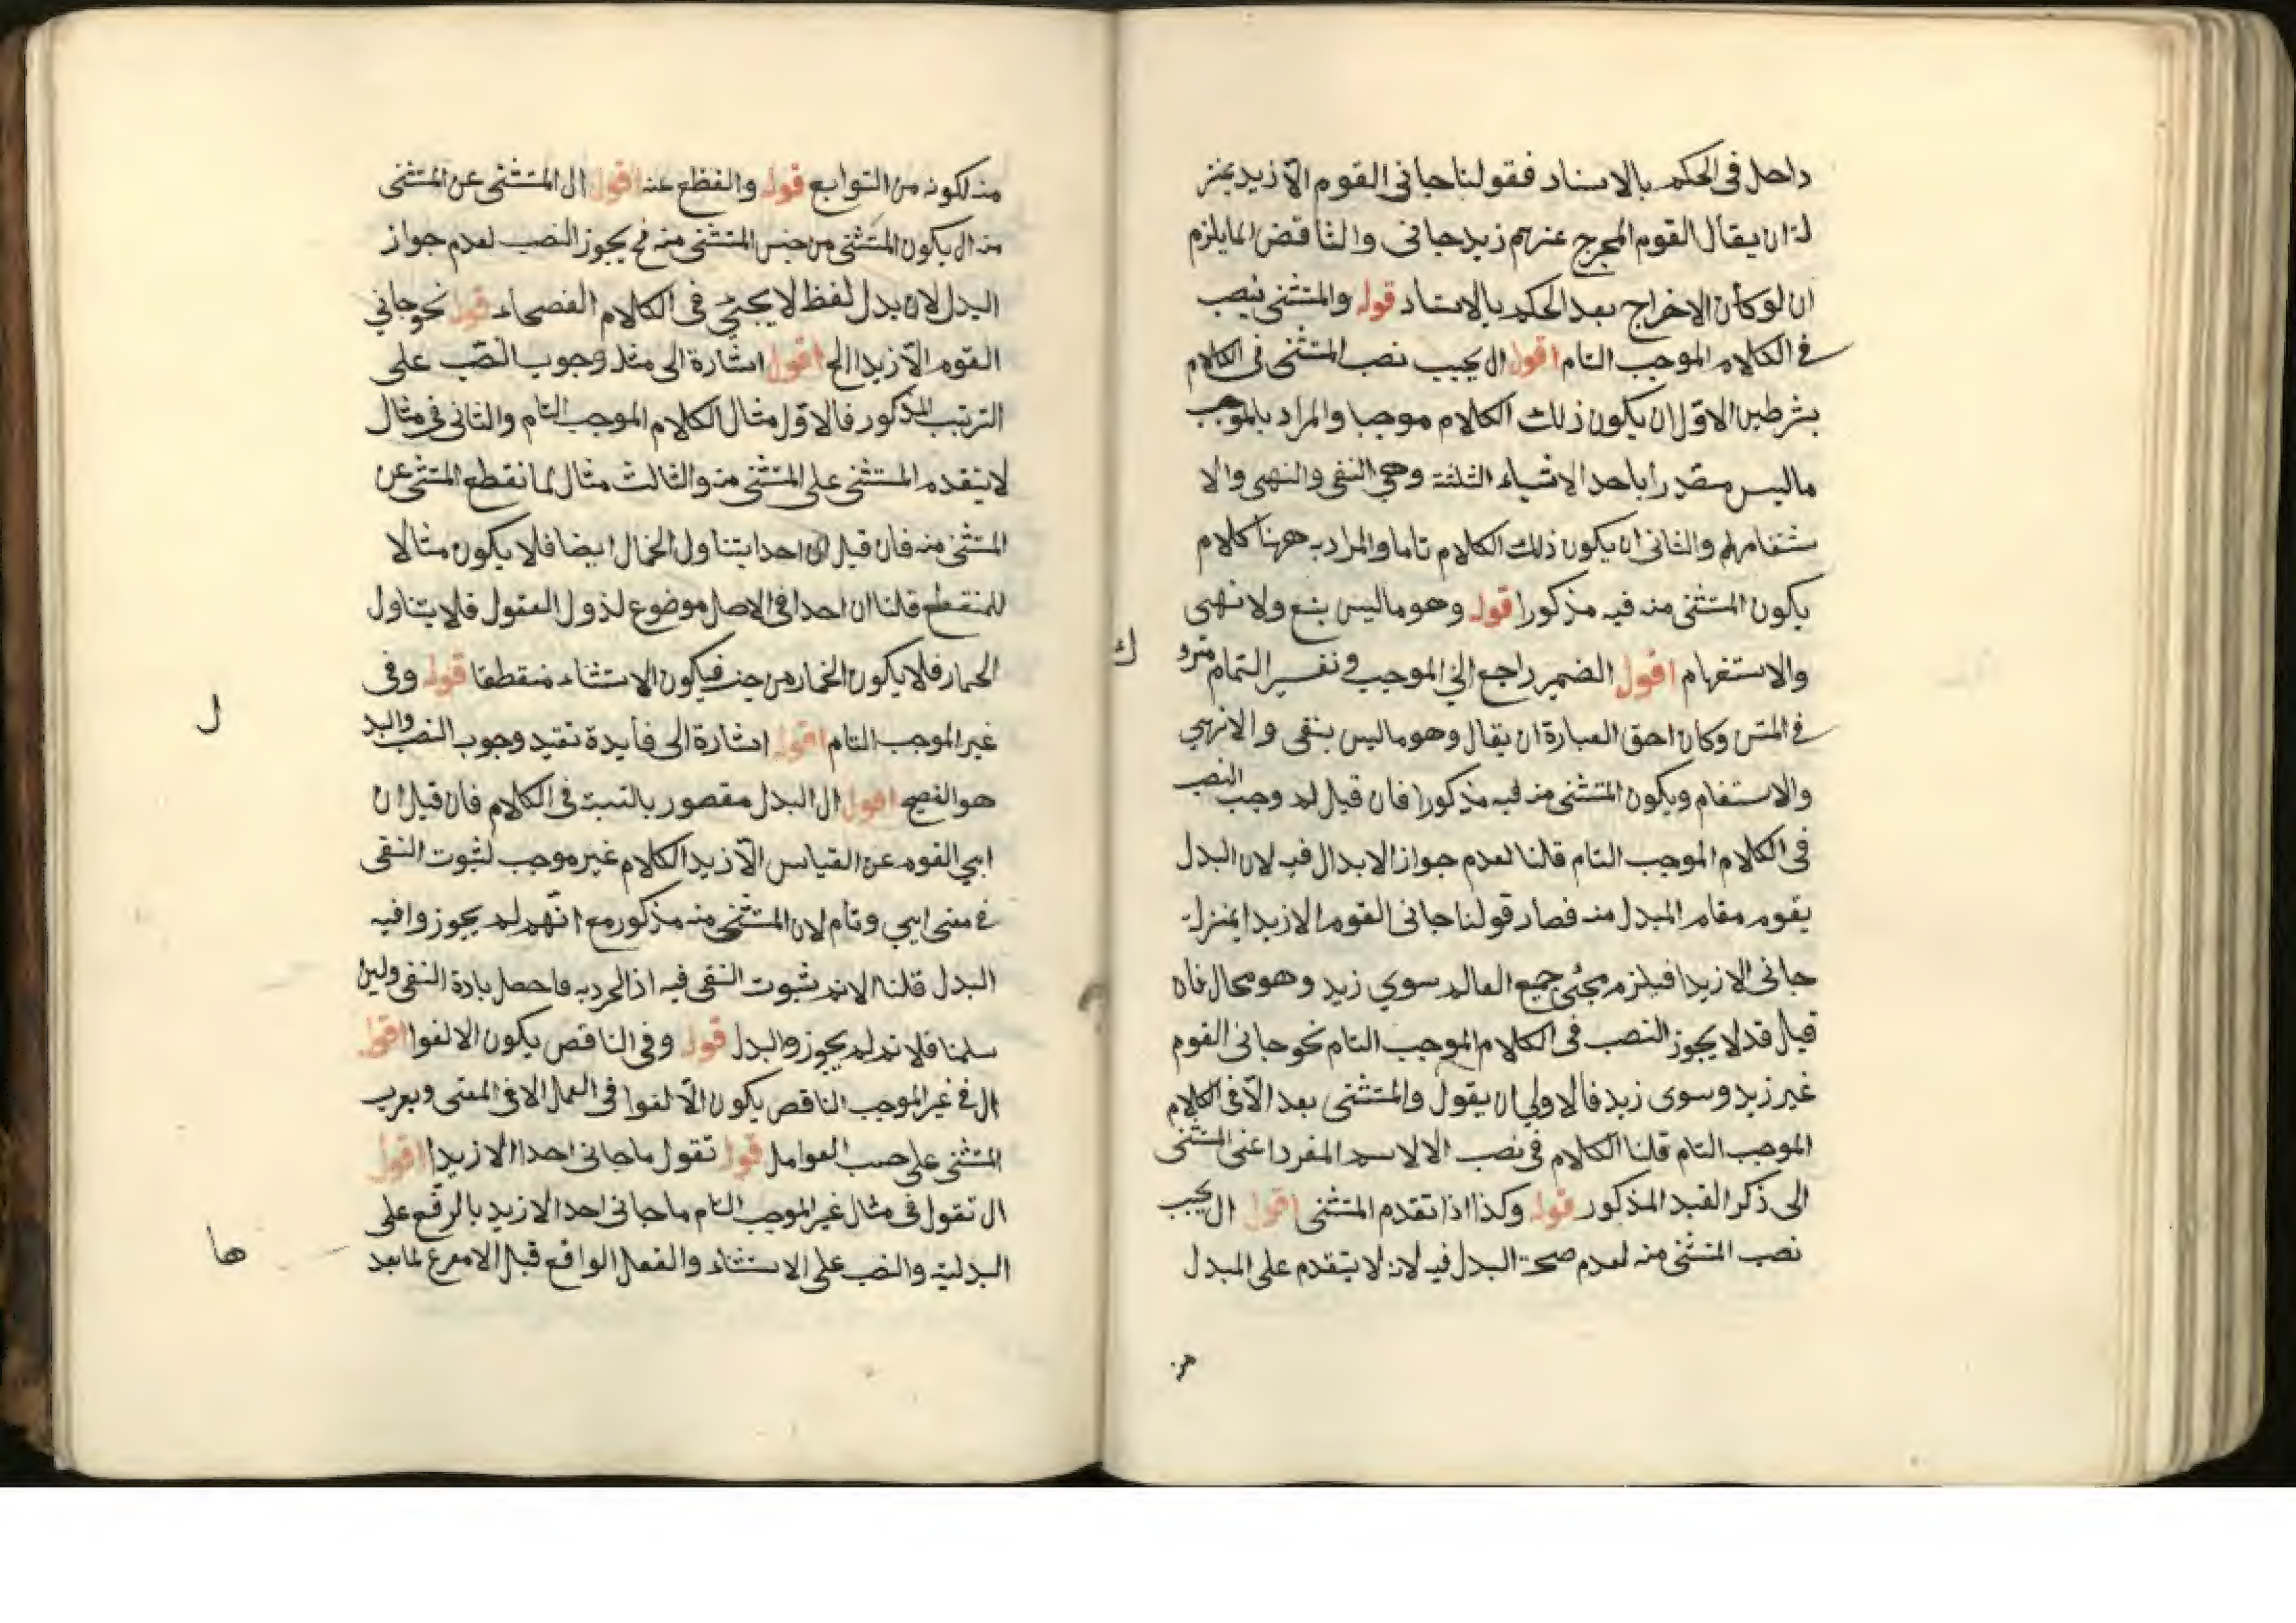 داخل فى الحكم بالاسناد فقولنا جانى القوم الّا زيد بمنز
لة ان يقال القوم المخرج عنهم زيد جانى والتناقض انما يلزم
ان لو كان الاخراج بعد الحكم بالاسناد قوله والمستثنى ينصب
فى الكلام الموجب التام اقول ال يجيب نصب المستثنى فى الكلام
بشرطين الاوّل ان يكون ذلك الكلام موجبا والمراد بالموجب
ماليس مصدرا باحد الاشياء الثلثة وهى النفى والنهى والا
ستفهام والثانى ان يكون ذلك الكلام تاما والمراد به ههنا كلام
يكون المستثنى منه فيه مذكورا قوله وهو ماليس بنع ولا نهى
والاستفهام اقول الضمير راجع الى الموجب وتفسير التمام مترو
فى المتن وكان احق العبارة ان يقال وهو ماليس بنفى والا نهى
والاستفام ويكون المستثنى منه فيه مذكورا فان قيل لم وجب النصب
فى الكلام الموجب التام قلنا لعدم جواز الابدال فيه لان البدل
يقوم مقام المبدل منه فصار قولنا جانى القوم الا زيدا بمنزلة
جانى الا زيدا فيلزم مجئى جميع العالم سوي زيد وهو محال فان
قيل قد لا يجوز النصب فى الكلام الموجب التام نحو جانى القوم
غير زيد وسوى زيد فالاولي ان يقول والمستثنى بعد الّا فى الكلام
الموجب التام قلنا الكلام فى نصب الا لاسم المفرد اغنى المستثنى
الى ذكر القيد المذكور قوله وكذا اذا تقدم المستثنى اقول ال يجيب
نصب المستثنى منه لعدم صحة البدل فيه لانه لا يتقدم على المبدل
منه لكونه من التوابع قوله والقظع عنه اقول ال المستثنى عن المستثنى
منه ال يكون المستثنى من جنس المستثنى منه فح يجوز النصب لعدم جواز
البدل لان بدل لفظ لا يجئى فى الكلام الفصحاء قوله نحو جانى
القوم الّا زيدا الخ اقول اشارة الى مثل وجوب النصّب على
الترتيب المذكور فالاوّل مثال الكلام الموجب التام والثانى فى مثال
لا يتقدم المستثنى على المستثنى منه والثالث مثال لما نقطع المستثنى عن
المستثنى منه فان قيل ان احدا يتناول الحمال ايضا فلا يكون مثالا
للمنقطع قلنا ان احدا فى الاصل موضوع لذول العقول فلا يتناول
الحمار فلا يكون الحمار من جنسه فيكون الاستثناء منقطعا قوله وفى
غير الموجب التام اقول اشارة الى فايدة تقيد وجوب النصب والبد
هو الفصيح اقول ال البدل مقصور بالنسبة فى الكلام فان قيل ان
ابي القوم عن القياس الّا زيدا الكلام غير موجب لثبوت النفى
فى معنى ابي وتام لان المستثنى منه مذكور مع انّهم لم يجوزوا فيه
البدل قلنا لا نم ثبوت النفى فيه اذ المرد به ماحصل بادة النفى ولين
سلمنا فلا نم لم يجوزوا البدل قوله وفى الناقص يكون الا لغوا اقول
ال فى غير الموجب الناقص يكون الّا لغوا فى العمل لا فى المعنى ويعرب
المستثنى على حسب العوامل قوله تقول ماجانى احد الا زيدا اقول
ال تقول فى مثال غير الموجب التام ماجانى احد الا زيد بالرفع على
البدلية والنصب على الاستثناء والفعل الواقع قبل الا مفرغ لما بعد
ك
ل
ها